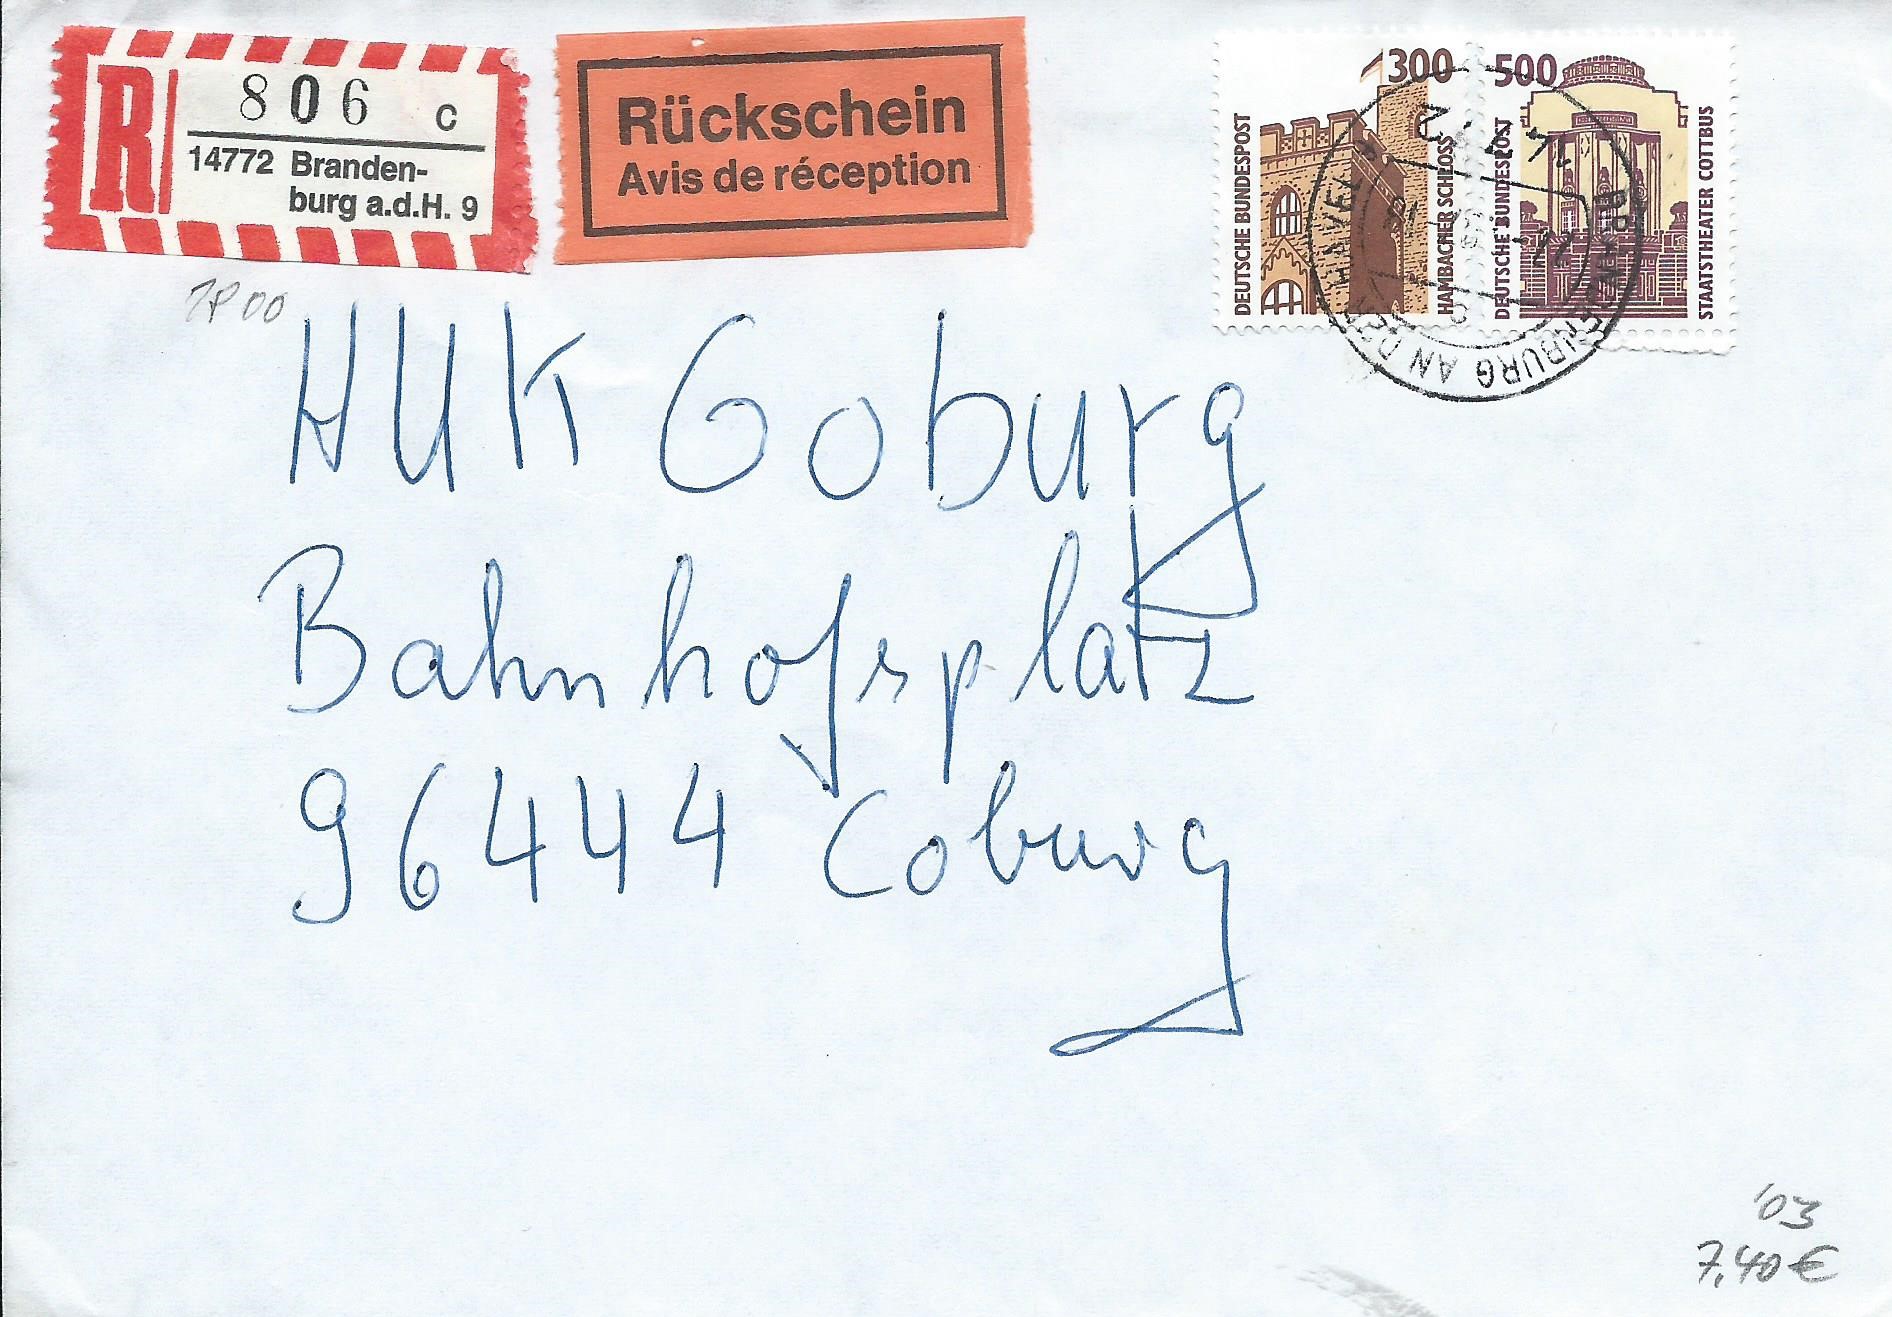 R
8 0 6 c
14772 Branden-
burg a.d.H. 9
Rückschein
Avis de réception
300
DEUTSCHE BUNDESPOST
HAMBACHER SCHLOSS
500
DEUTSCHE BUNDESPOST
STAATSTHEATER COTTBUS
BRANDENBURG AN DER HAVEL
HUK Coburg
Bahnhofsplatz
96444 Coburg
'03
7,40 €